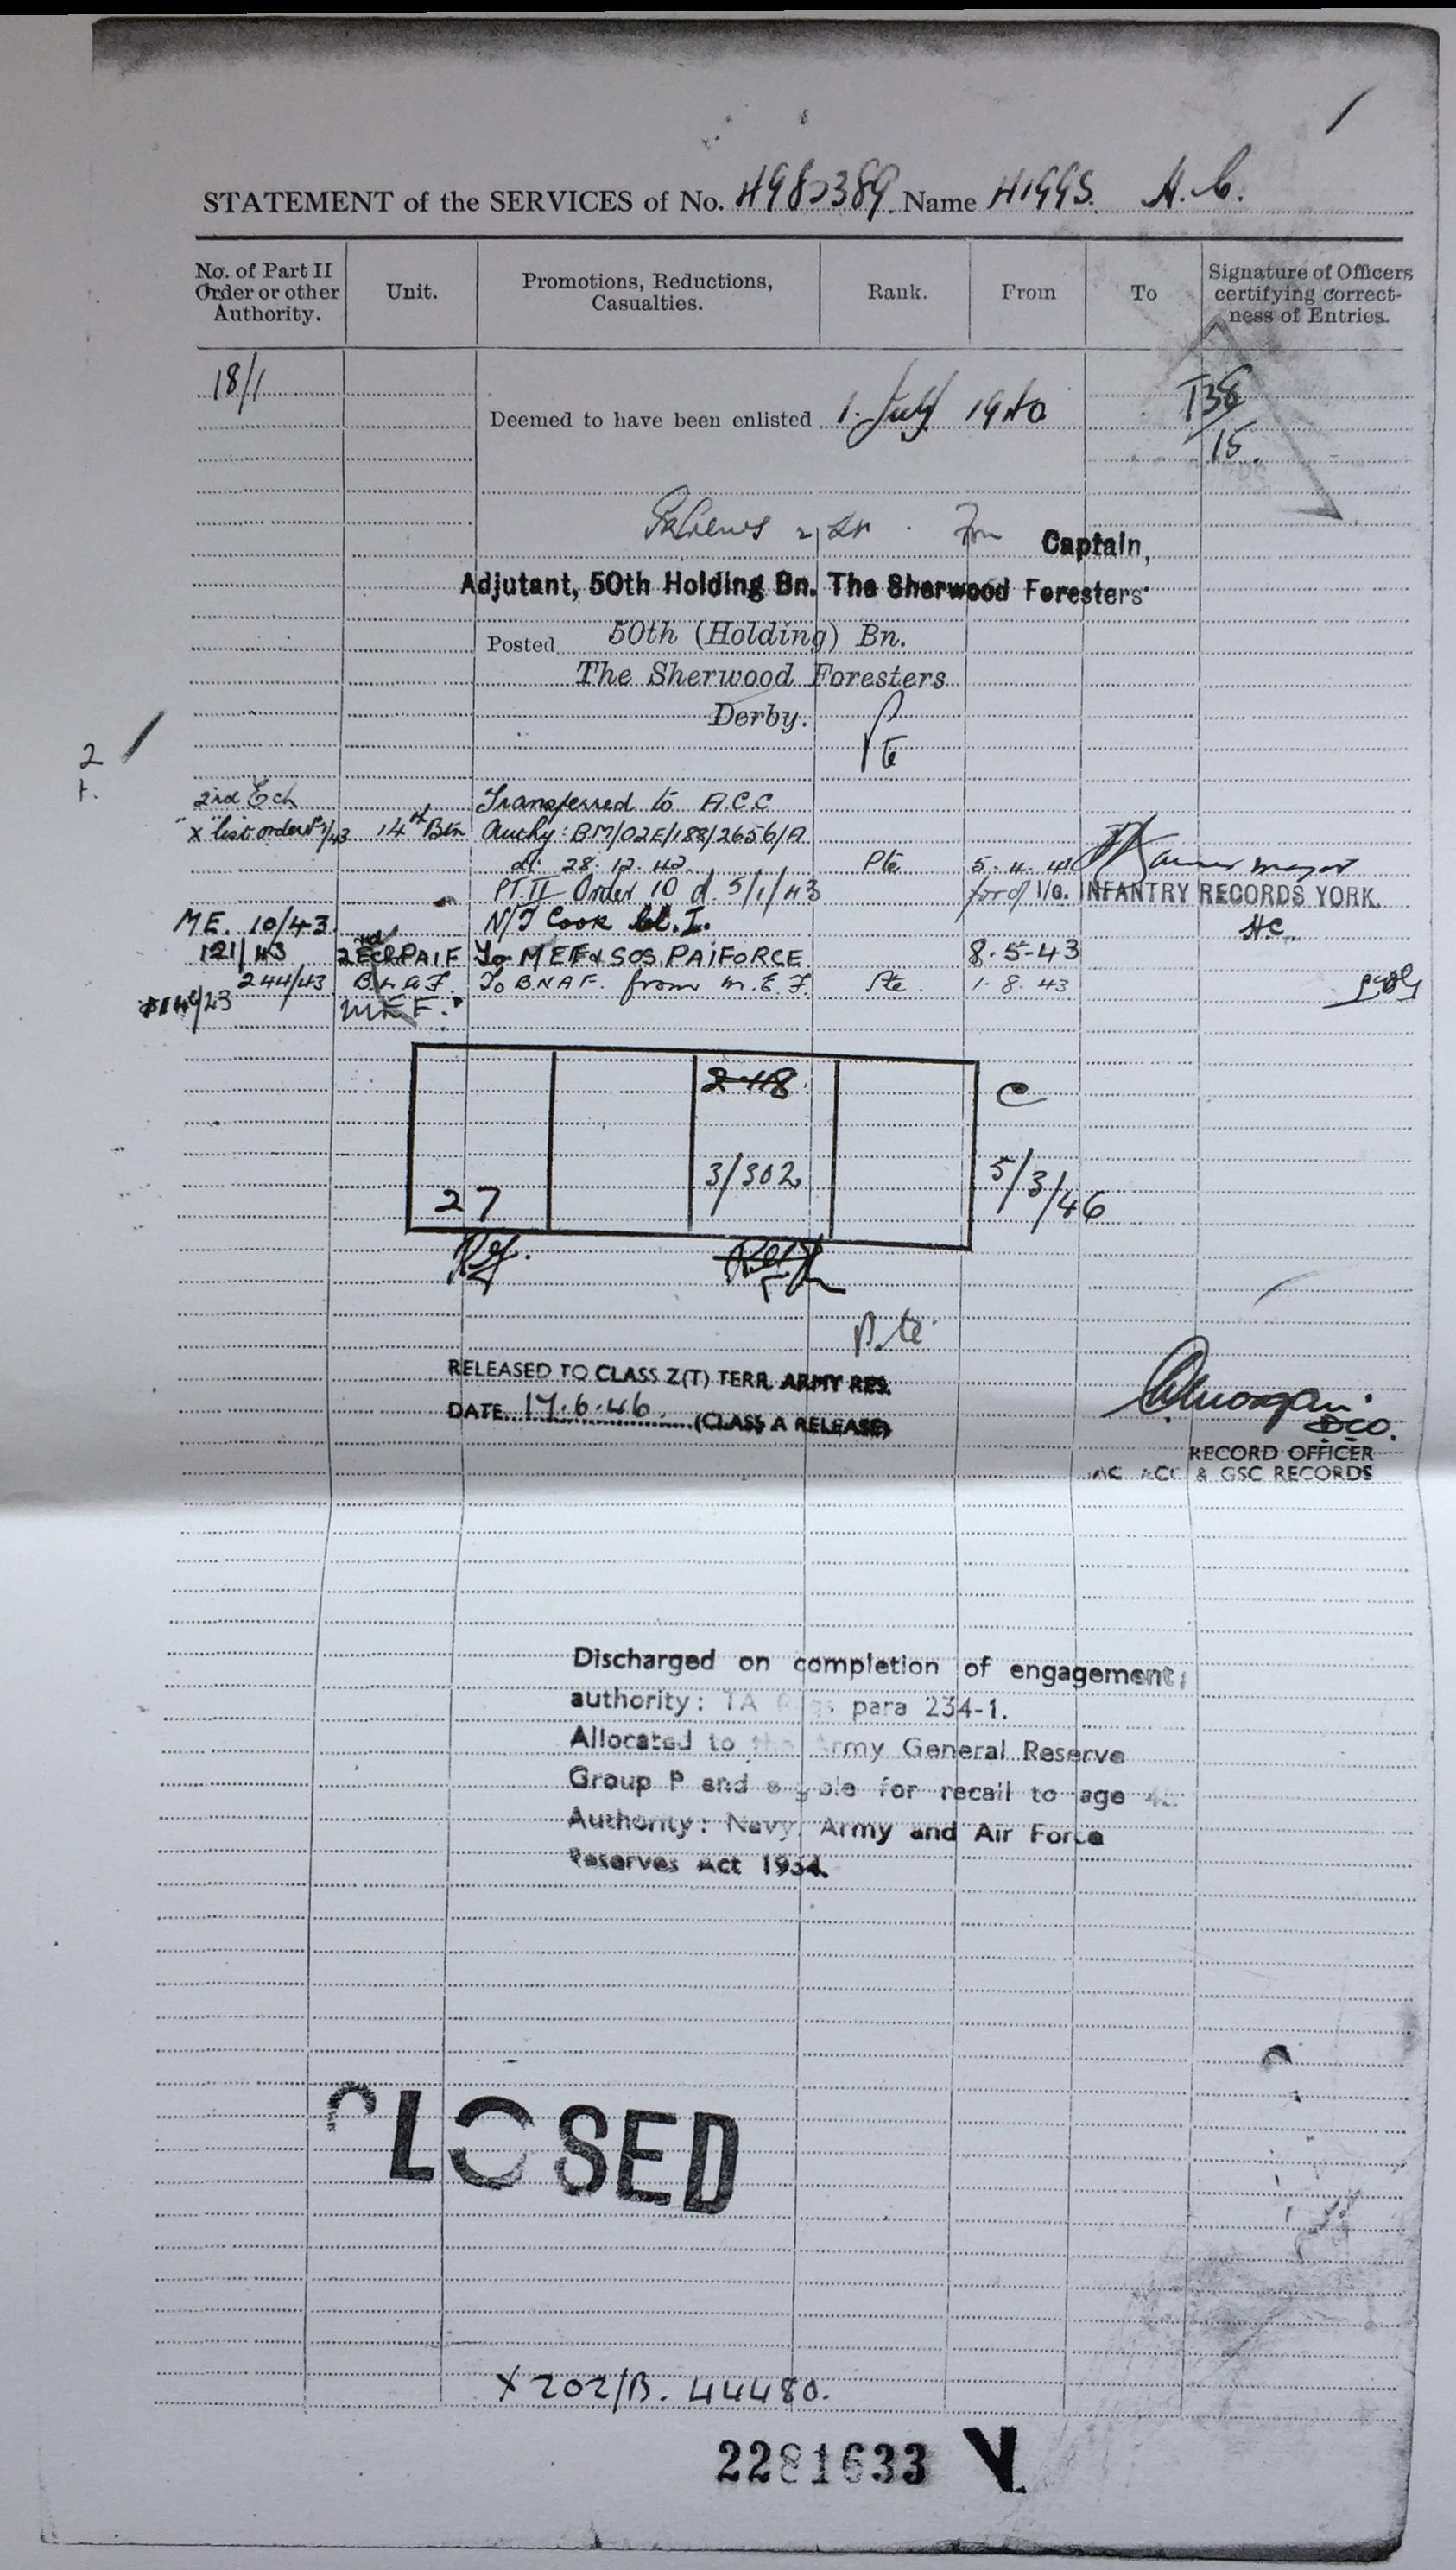 STATEMENT of the SERVICES of No. 4982389 Name HIGGS. A. C.
No. of Part II Order or other Authority.
Unit.
Promotions, Reductions, Casualties.
Rank.
From
To
Signature of Officers certifying correctness of Entries.
18/1
Deemed to have been enlisted 1. July 1940
T38
15.
2/Lt. For Captain,
Adjutant, 50th Holding Bn. The Sherwood Foresters
Posted 50th (Holding) Bn.
The Sherwood Foresters
Derby.
Pte
2
2nd Ech Transferred to A.C.C
"X" list order No 1/43 14th Btn Authy: BM/02E/188/2656/A
dt. 28.12.42. Pte 5.4.41 Major
PT II Order 10 d. 5/1/43 for O I/c. INFANTRY RECORDS YORK.
ME. 10/43 N/T Cook Cl. I. HC.
121/43 2nd Ech PAIF To MEF & SOS PAIFORCE 8.5-43
244/43 BNAF. To BNAF. from M.E.F. Pte. 1.8.43
M.E.F.
248 C
3/302 5/3/46
27
Pte
RELEASED TO CLASS Z(T) TERR. ARMY RES.
DATE 17.6.46. (CLASS A RELEASE)
DCO.
RECORD OFFICER
ACC & GSC RECORDS
Discharged on completion of engagement,
authority: TA Regs para 234-1.
Allocated to the Army General Reserve
Group P and eligible for recall to age 45
Authority: Navy, Army and Air Force
Reserves Act 1954.
CLOSED
X202/B. 44480.
2281633 V